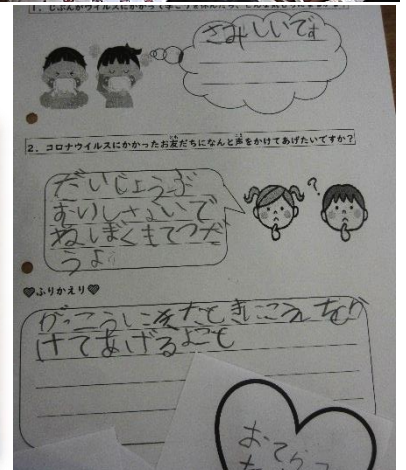 1. じぶんがウイルスにかかって学こうを休んだら、
さみしいです
2. コロナウイルスにかかったお友だちになんと声をかけてあげたいですか?
だいじょうぶ
むりしないで
ねぼくもてつだ
うよ
?
♥ふりかえり♥
がっこうにきたときにこえをか
けてあげる